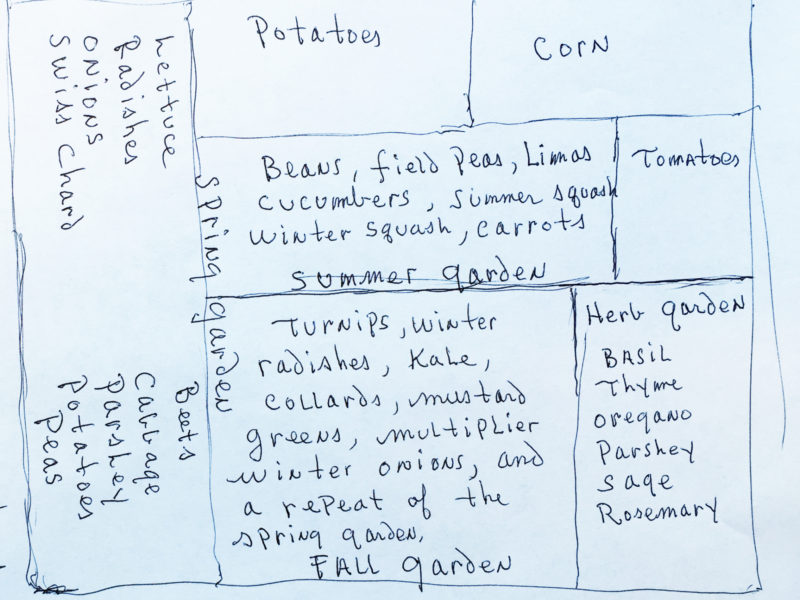 Lettuce
Radishes
onions
Swiss Chard
Beets
Cabbage
Parsley
Potatoes
Peas
Spring garden
Potatoes
CORN
Beans, field Peas, Limas
cucumbers, summer squash
winter squash, carrots
summer garden
Tomatoes
Turnips, winter
radishes, Kale,
collards, mustard
greens, multiplier
winter onions, and
a repeat of the
spring garden.
FALL garden
Herb garden
BASIL
Thyme
oregano
Parsley
sage
Rosemary